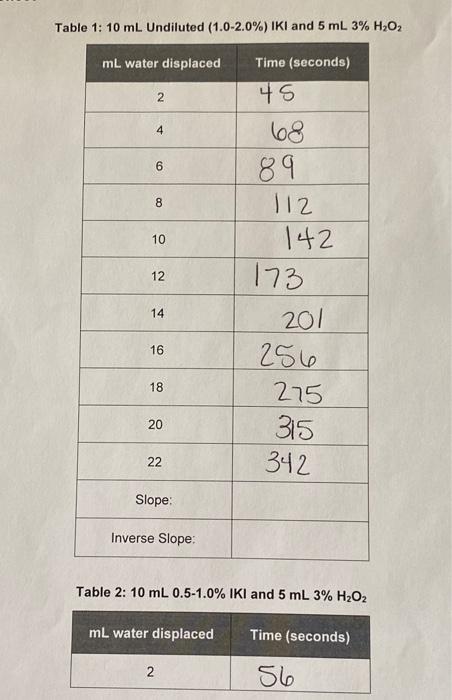 Table 1: 10 mL Undiluted (1.0-2.0%) IKI and 5 mL 3% H₂O₂
mL water displaced Time (seconds)
2 45
4 68
6 89
8 112
10 142
12 173
14 201
16 256
18 275
20 315
22 342
Slope:
Inverse Slope:
Table 2: 10 mL 0.5-1.0% IKI and 5 mL 3% H₂O₂
mL water displaced Time (seconds)
2 56